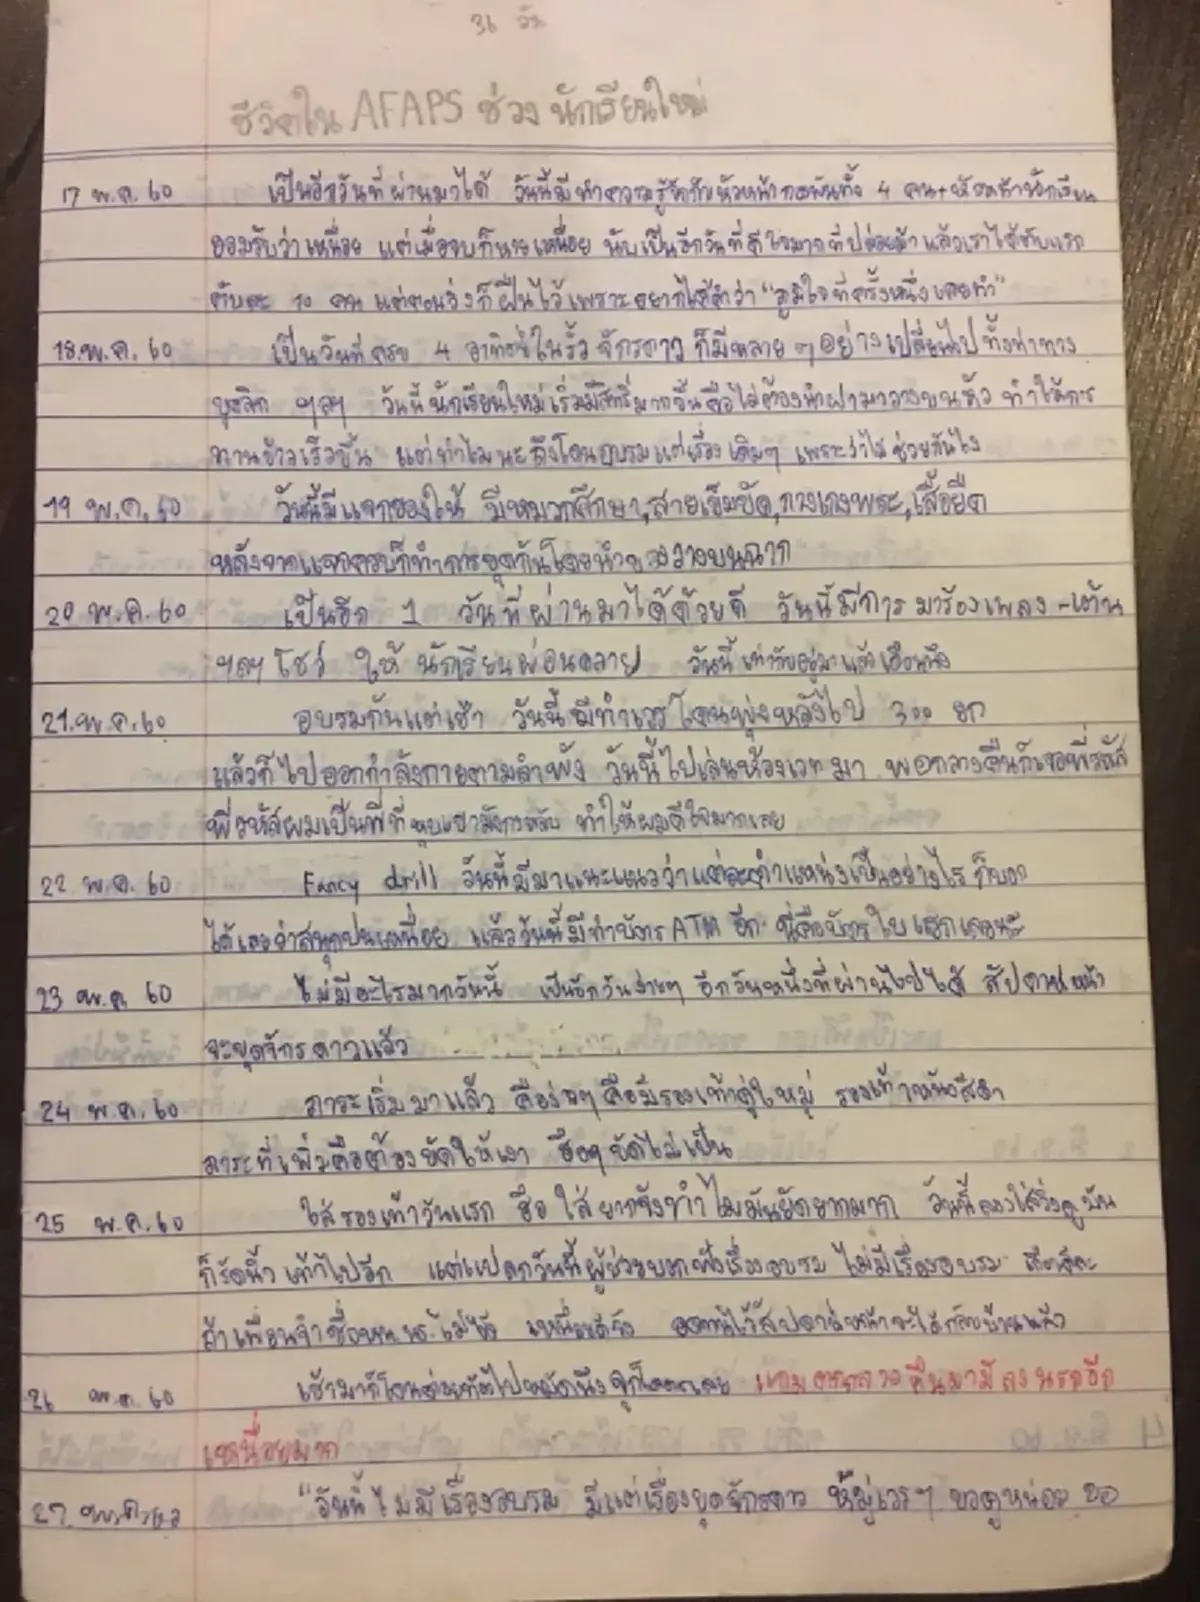 36 วัน
ชีวิตใน AFAPS ช่วง นักเรียนใหม่
17 พ.ค. 60 เป็นอีกวันที่ผ่านมาได้ วันนี้มีทำความรู้จักกับหัวหน้ากองพันทั้ง 4 คน+
ยอมรับว่าเหนื่อย แต่เมื่อจบก็หายเหนื่อย นับเป็นอีกวันที่ดีใจมากที่ แล้วเราได้ตับแรก
ตับละ 10 คน แต่ตอนวิ่งก็ฝืนไว้เพราะอยากได้คำว่า "ภูมิใจที่ครั้งหนึ่งเคยทำ"
18.พ.ค. 60 เป็นวันที่ครบ 4 อาทิตย์ในรั้วจักรดาว ก็มีหลาย ๆ อย่างเปลี่ยนไป ทั้งท่าทาง
บุคลิก ฯลฯ วันนี้นักเรียนใหม่เริ่มมีสิทธิ์มากขึ้นคือไม่ต้องนำฝามาวางบนหัว ทำให้การ
ทานข้าวเร็วขึ้น แต่ทำไมนะถึงโดนอบรมแต่เรื่องเดิมๆ เพราะว่าไม่ช่วยกันไง
19 พ.ค. 60 วันนี้มีแจกของให้ มีหมวกศึกษา,สายเข็มขัด,กางเกงพละ,เสื้อยืด
หลังจากแจกครบก็ทำการชุดกันโดยนำ วางบนฉาก
20 พ.ค. 60 เป็นอีก 1 วันที่ผ่านมาได้ด้วยดี วันนี้มีการมาร้องเพลง -เต้น
ฯลฯ โชว์ ให้ นักเรียนผ่อนคลาย วันนี้ เท่ากับอยู่มาแล้วเดือนนึง
21.พ.ค. 60 อบรมกันแต่เช้า วันนี้มีทำเวรโดนพุ่งหลังไป 300 ยก
แล้วก็ไปออกกำลังกายตามลำพัง วันนี้ไปเล่นห้องเวทมา พอกลางคืนก็เจอพี่รหัส
พี่รหัสผมเป็นพี่ที่ ทำให้ผมดีใจมากเลย
22 พ.ค. 60 Fancy drill วันนี้มีมาแนะแนวว่าแต่ละตำแหน่งเป็นอย่างไร ก็บอก
ได้เลยว่าสนุกปนเหนื่อย แล้ววันนี้มีทำบัตร ATM อีก นี่คือบัตรใบแรกเลยนะ
23 พ.ค 60 ไม่มีอะไรมากวันนี้ เป็นอีกวันง่ายๆ อีกวันหนึ่งที่ผ่านไปได้ สัปดาห์หน้า
จะขุดจักรดาวแล้ว
24 พ.ค. 60 ภาระเริ่มมาแล้ว คือง่ายๆ คือมีรองเท้าคู่ใหม่ รองเท้าหนังสีดำ
ภาระที่เพิ่มคือต้องขัดให้เงา ซึ่งๆขัดไม่เป็น
25 พ.ค. 60 ใส่รองเท้าวันแรก ใส่ยากจังทำไมมันยัดยากมาก วันนี้ลองใส่วิ่งดูมัน
ก็รัดนิ้วเท้าไปอีก แต่แปลกวันนี้ผู้ช่วยบอกฟังเรื่องอบรม ไม่มีเรื่องอบรม
ถ้าเพื่อนจำชื่อ ไม่ได้ อดทนไว้สัปดาห์หน้าจะได้กลับบ้านแล้ว
26 พ.ค. 60 เช้ามาก็โดน แถมตกกลางคืนมามีลงนรกอีก
เหนื่อยมาก
27 พ.ค. 60 "วันนี้ไม่มีเรื่องอบรม มีแต่เรื่องขุดจักรดาว